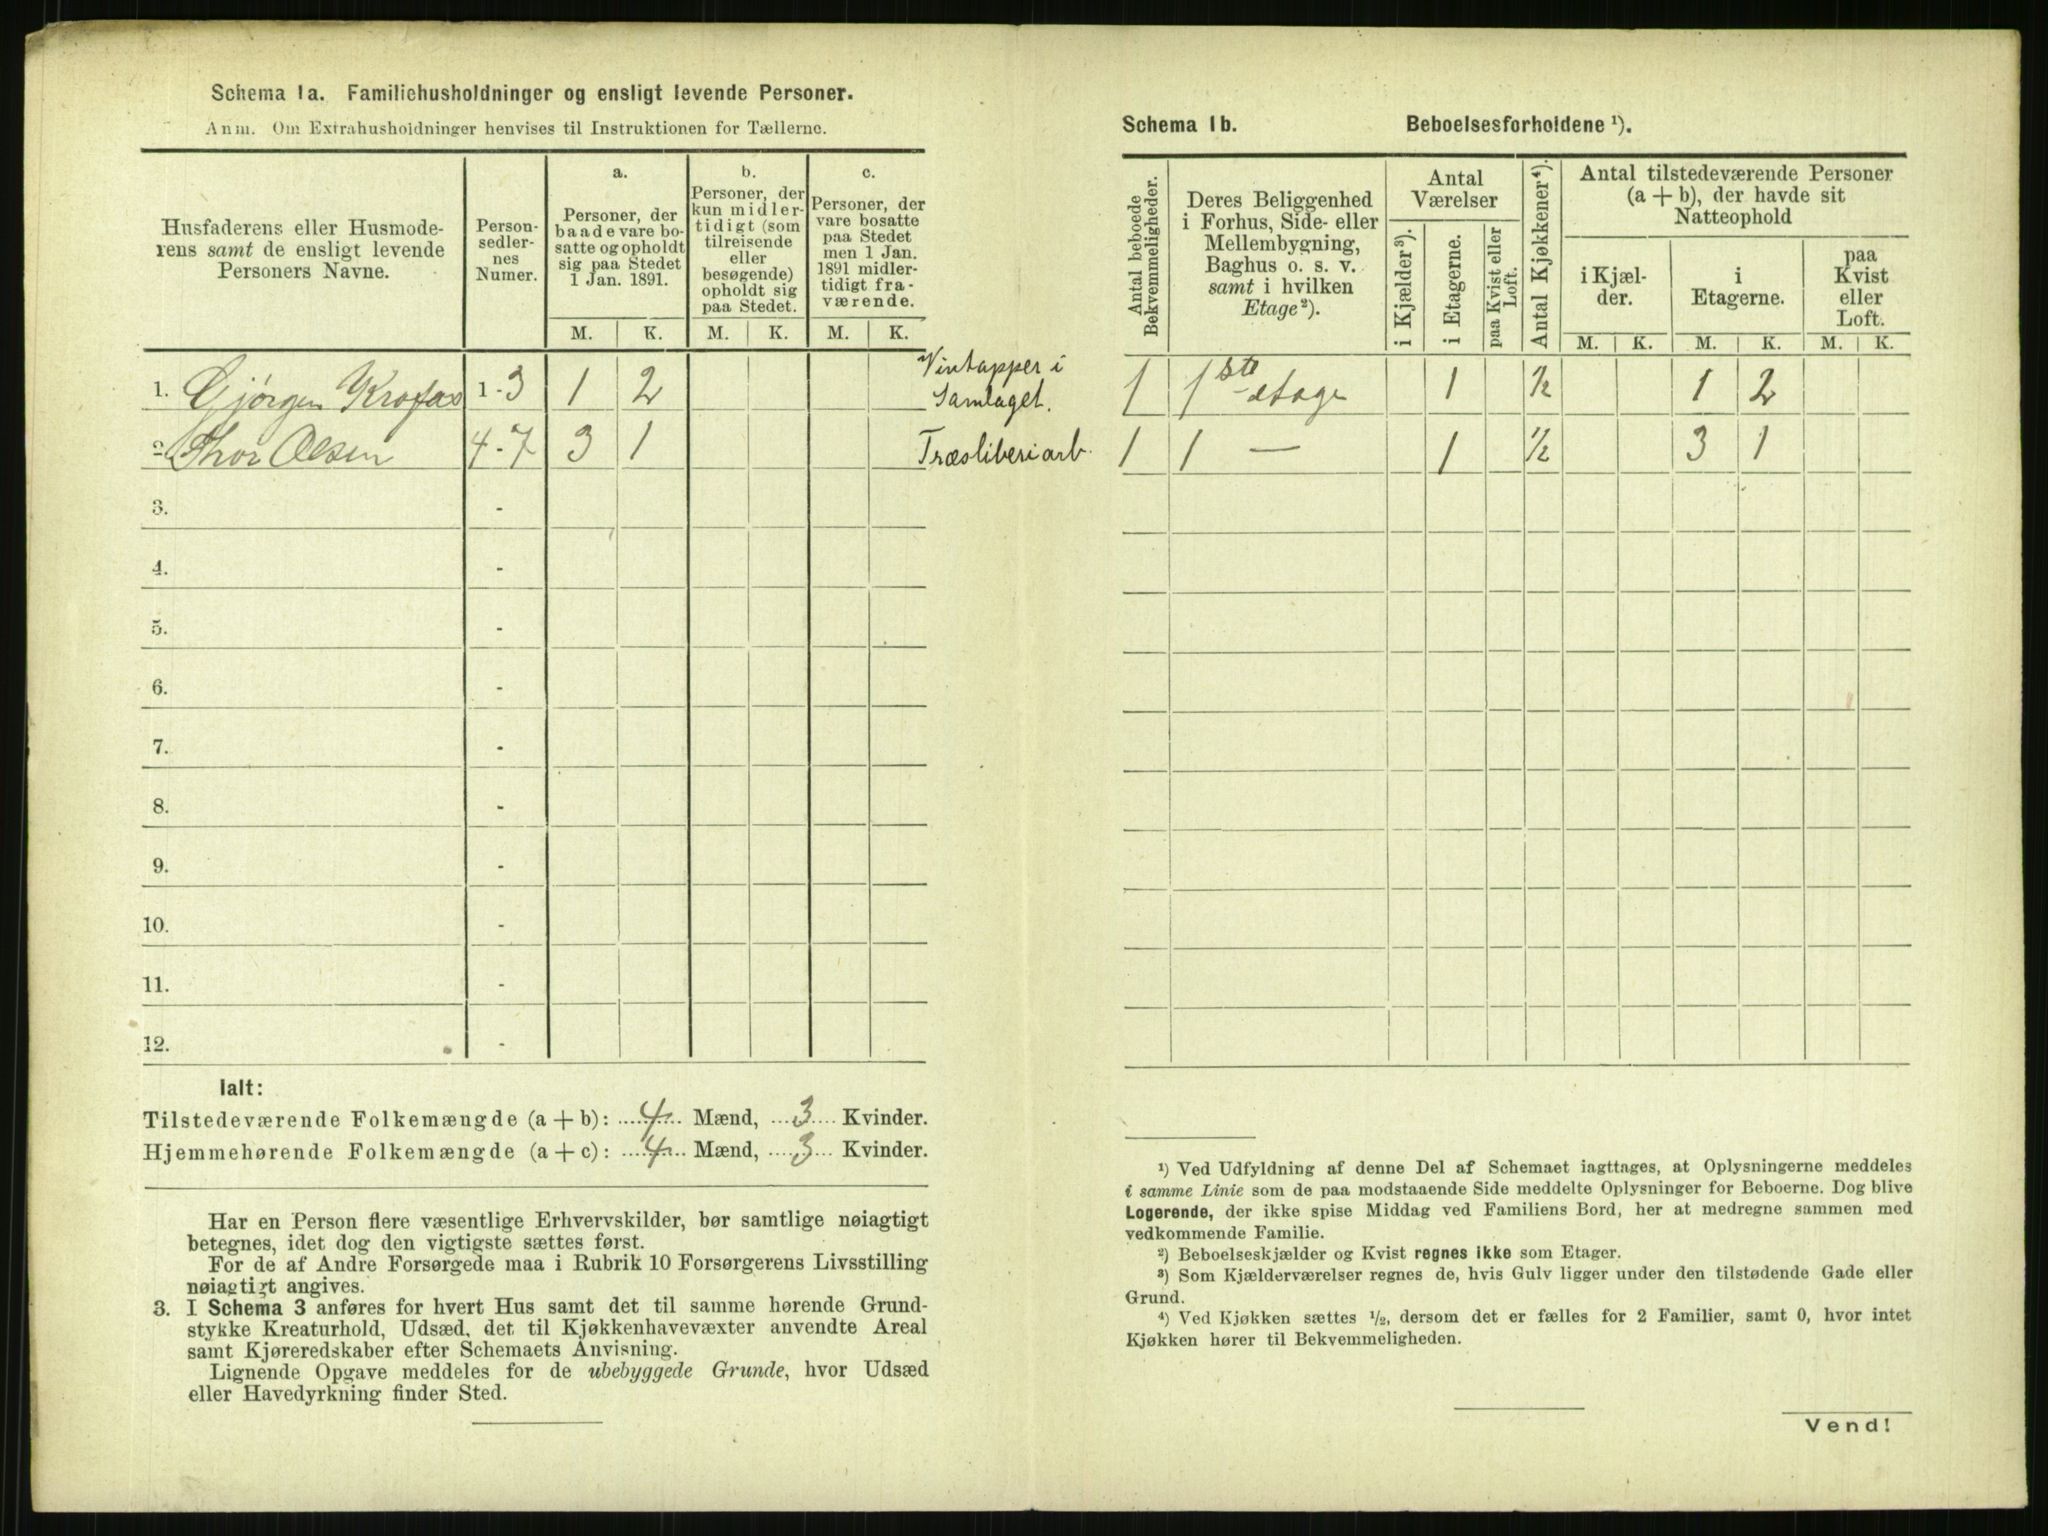 Schema 1a. Familiehusholdninger og ensligt levende Personer.
Anm. Om Extrahusholdninger henvises til Instruktionen for Tællerne.
Husfaderens eller Husmode-
rens samt de ensligt levende
Personers Navne.
Person-
sedler-
nes
Numer.
a.
Personer, der
baade vare bo-
satte og opholdt
sig paa Stedet
1 Jan. 1891.
b.
Personer, der
kun midler-
tidigt (som
tilreisende
eller
besøgende)
opholdt sig
paa Stedet.
c.
Personer, der
vare bosatte
paa Stedet
men 1 Jan.
1891 midler-
tidigt fra-
værende.
M. K. M. K. M. K.
1. Gjørgen Krafas 1-3 1 2
Vintapper i
Samlaget.
2. Thor Olsen 4-7 3 1 Træsliberiarb.
3. -
4. -
5. -
6. -
7. -
8. -
9. -
10. -
11. -
12. -
Ialt:
Tilstedeværende Folkemængde (a + b): 4 Mænd, 3 Kvinder.
Hjemmehørende Folkemængde (a + c): 4 Mænd, 3 Kvinder.
Har en Person flere væsentlige Erhvervskilder, bør samtlige nøiagtigt
betegnes, idet dog den vigtigste sættes først.
For de af Andre Forsørgede maa i Rubrik 10 Forsørgerens Livsstilling
nøiagtigt angives.
3. I Schema 3 anføres for hvert Hus samt det til samme hørende Grund-
stykke Kreaturhold, Udsæd, det til Kjøkkenhavevæxter anvendte Areal
samt Kjøreredskaber efter Schemaets Anvisning.
Lignende Opgave meddeles for de ubebyggede Grunde, hvor Udsæd
eller Havedyrkning finder Sted.
Schema 1b. Beboelsesforholdene ¹).
Antal beboede
Bekvemmeligheder.
Deres Beliggenhed
i Forhus, Side- eller
Mellembygning,
Baghus o. s. v.
samt i hvilken
Etage ²).
Antal
Værelser
i Kjælder ³).
i Etagerne.
paa Kvist eller
Loft.
Antal Kjøkkener ⁴).
Antal tilstedeværende Personer
(a + b), der havde sit
Natteophold
i Kjæl-
der.
i
Etagerne.
paa
Kvist
eller
Loft.
M. K. M. K. M. K.
1 1ste etage 1 ½ 1 2
1 1 — 1 ½ 3 1
¹) Ved Udfyldning af denne Del af Schemaet iagttages, at Oplysningerne meddeles
i samme Linie som de paa modstaaende Side meddelte Oplysninger for Beboerne. Dog blive
Logerende, der ikke spise Middag ved Familiens Bord, her at medregne sammen med
vedkommende Familie.
²) Beboelseskjælder og Kvist regnes ikke som Etager.
³) Som Kjælderværelser regnes de, hvis Gulv ligger under den tilstødende Gade eller
Grund.
⁴) Ved Kjøkken sættes ½, dersom det er fælles for 2 Familier, samt 0, hvor intet
Kjøkken hører til Bekvemmeligheden.
Vend!